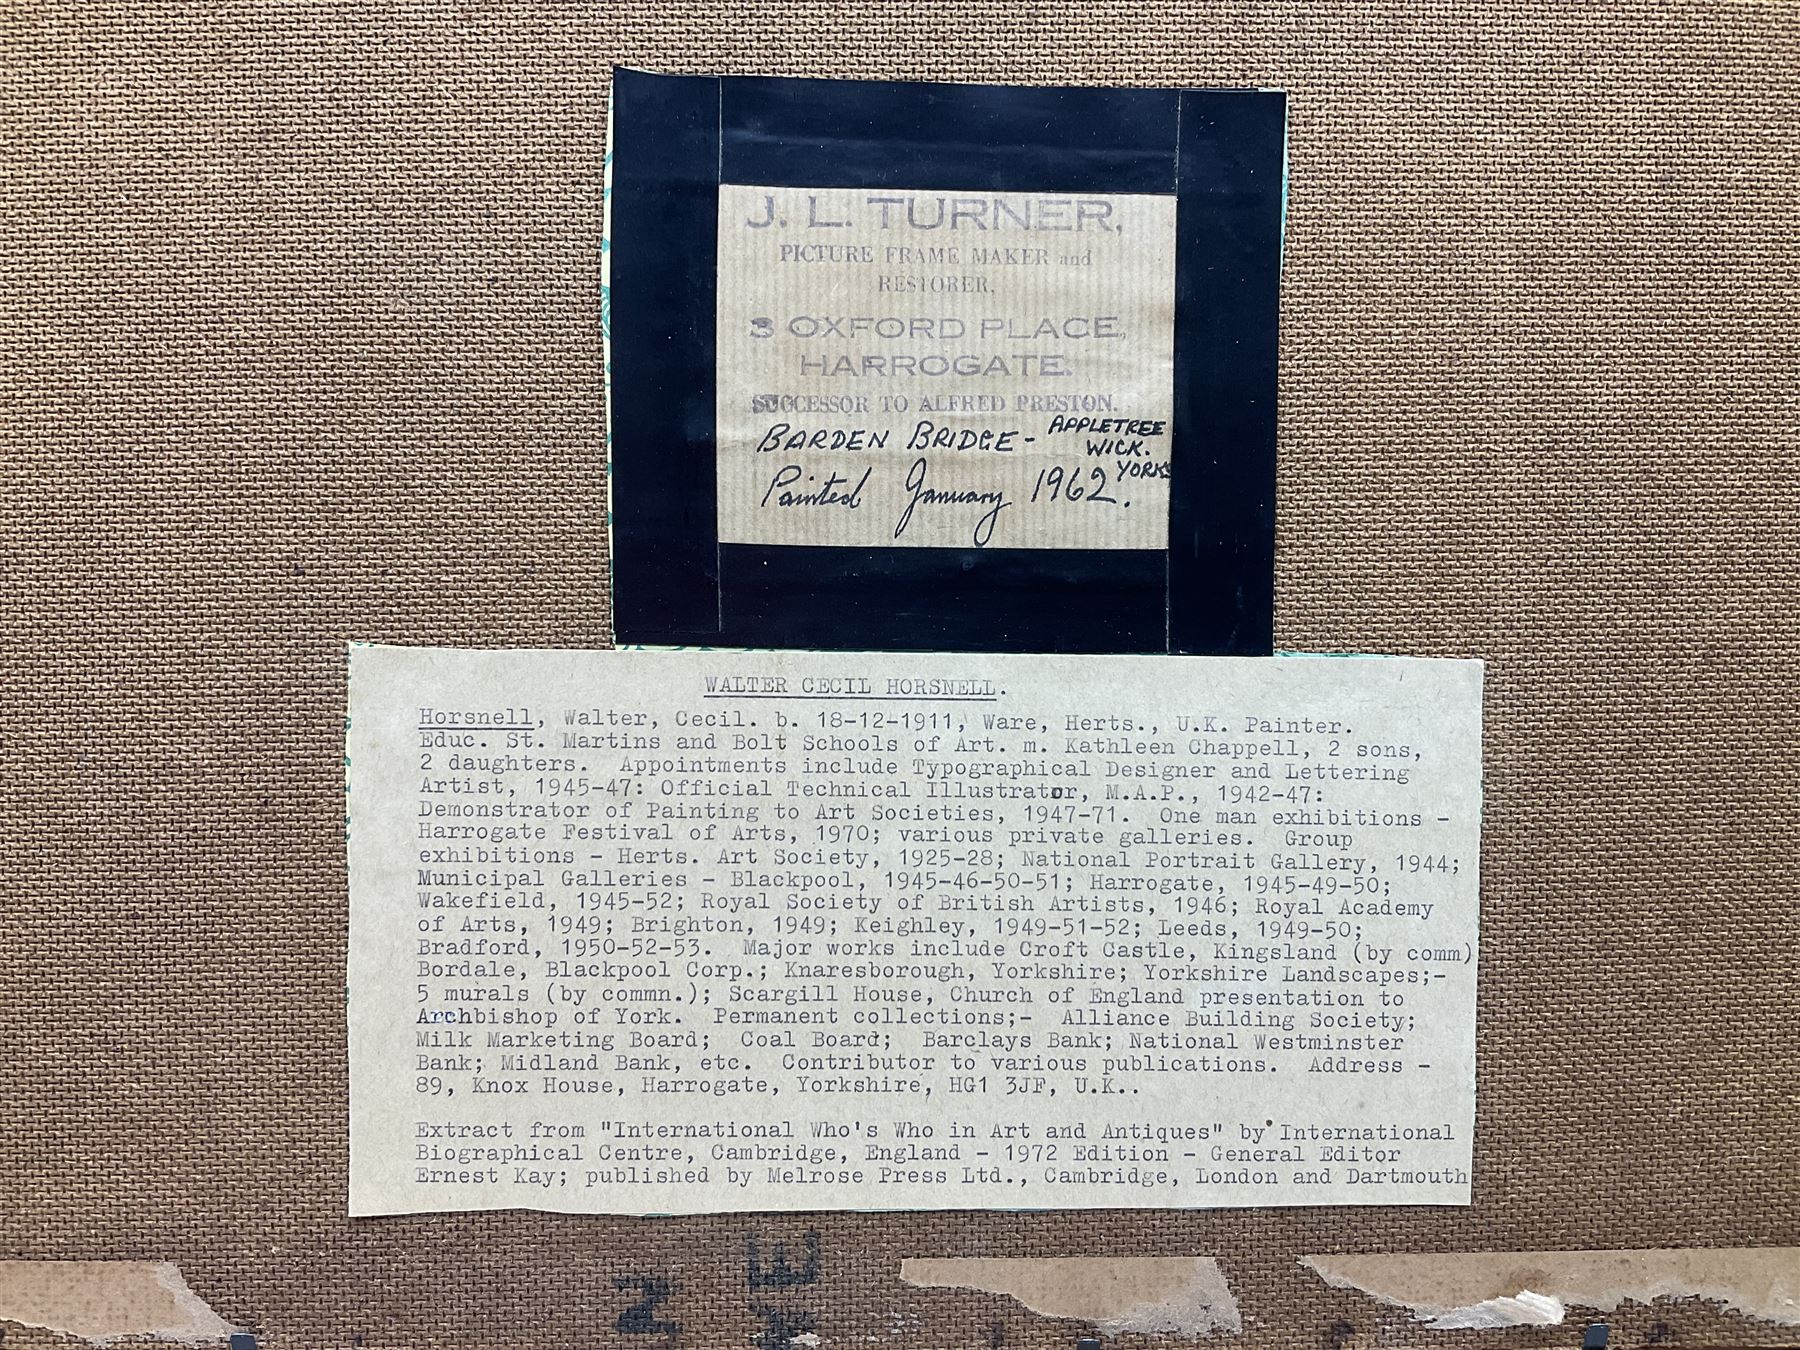 J. L. TURNER,
PICTURE FRAME MAKER and
RESTORER,
3 OXFORD PLACE,
HARROGATE.
SUCCESSOR TO ALFRED PRESTON.
BARDEN BRIDGE - APPLETREE
WICK.
YORKS
Painted January 1962.
WALTER CECIL HORSNELL.
Horsnell, Walter, Cecil. b. 18-12-1911, Ware, Herts., U.K. Painter.
Educ. St. Martins and Bolt Schools of Art. m. Kathleen Chappell, 2 sons,
2 daughters. Appointments include Typographical Designer and Lettering
Artist, 1945-47: Official Technical Illustrator, M.A.P., 1942-47:
Demonstrator of Painting to Art Societies, 1947-71. One man exhibitions -
Harrogate Festival of Arts, 1970; various private galleries. Group
exhibitions - Herts. Art Society, 1925-28; National Portrait Gallery, 1944;
Municipal Galleries - Blackpool, 1945-46-50-51; Harrogate, 1945-49-50;
Wakefield, 1945-52; Royal Society of British Artists, 1946; Royal Academy
of Arts, 1949; Brighton, 1949; Keighley, 1949-51-52; Leeds, 1949-50;
Bradford, 1950-52-53. Major works include Croft Castle, Kingsland (by comm)
Bordale, Blackpool Corp.; Knaresborough, Yorkshire; Yorkshire Landscapes;-
5 murals (by commn.); Scargill House, Church of England presentation to
Archbishop of York. Permanent collections;- Alliance Building Society;
Milk Marketing Board; Coal Board; Barclays Bank; National Westminster
Bank; Midland Bank, etc. Contributor to various publications. Address -
89, Knox House, Harrogate, Yorkshire, HG1 3JF, U.K..
Extract from "International Who's Who in Art and Antiques" by International
Biographical Centre, Cambridge, England - 1972 Edition - General Editor
Ernest Kay; published by Melrose Press Ltd., Cambridge, London and Dartmouth